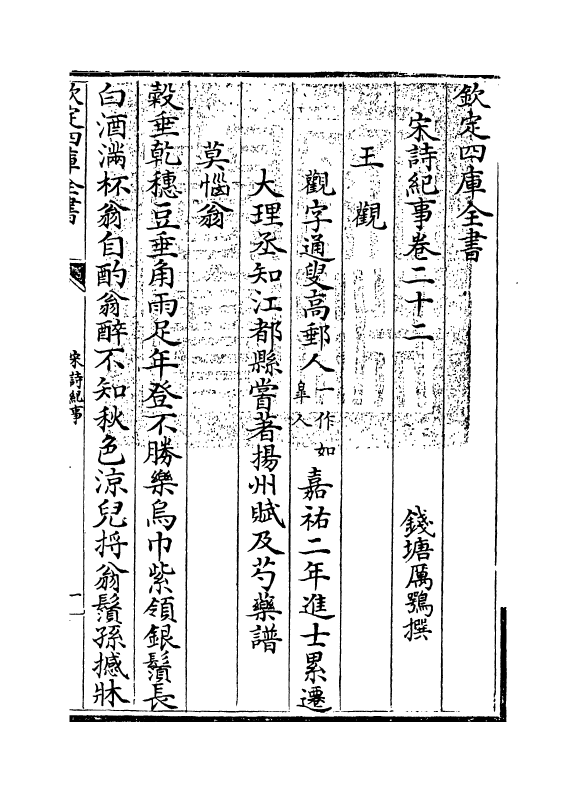 欽定四庫全書
宋詩紀事卷二十二
錢塘厲鶚撰
王觀
觀字通叟高郵人一作如臯人嘉祐二年進士累遷
大理丞知江都縣嘗著揚州賦及芍藥譜
莫惱翁
穀垂乾穗豆垂角雨足年登不勝樂烏巾紫領銀鬚長
白酒滿杯翁自酌翁醉不知秋色涼兒捋翁鬚孫撼牀
欽定四庫全書
宋詩紀事
一